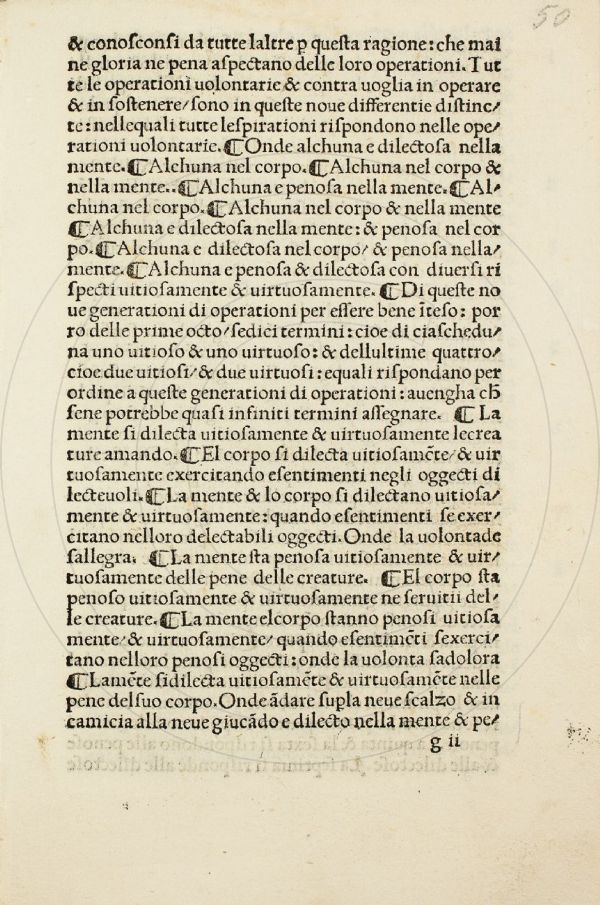 50
& conosconsi da tutte laltre ꝑ questa ragione: che mai
ne gloria ne pena aspectano delle loro operationi. Tut
te le operationi uolontarie & contra uoglia in operare
& in sostenere/ sono in queste noue differentie distinc/
te: nellequali tutte lespirationi rispondono nelle ope/
rationi uolontarie. ⸿Onde alchuna e dilectosa nella
mente. ⸿Alchuna nel corpo. ⸿Alchuna nel corpo &
nella mente.. ⸿Alchuna e penosa nella mente. ⸿Al/
chuna nel corpo. ⸿Alchuna nel corpo & nella mente
⸿Alchuna e dilectosa nella mente: & penosa nel cor
po. ⸿Alchuna e dilectosa nel corpo/ & penosa nella/
mente. ⸿Alchuna e penosa & dilectosa con diuersi ri
specti uitiosamente & uirtuosamente. ⸿Di queste no
ue generationi di operationi per essere bene ĩteso: por
ro delle prime octo/ sedici termini: cioe di ciaschedu/
na uno uitioso & uno uirtuoso: & dellultime quattro/
cioe due uitiosi/ & due uirtuosi: equali rispondano per
ordine a queste generationi di operationi: auengha cħ
sene potrebbe quasi infiniti termini assegnare. ⸿La
mente si dilecta uitiosamente & uirtuosamente lecrea
ture amando. ⸿El corpo si dilecta uitiosamẽte/ & uir
tuosamente exercitando esentimenti negli oggecti di
lecteuoli. ⸿La mente & lo corpo si dilectano uitiosa/
mente & uirtuosamente: quando esentimenti se exer/
citano nelloro delectabili oggecti. Onde la uolontade
sallegra. ⸿La mente sta penosa uitiosamente & uir/
tuosamente delle pene delle creature. ⸿El corpo sta
penoso uitiosamente & uirtuosamente ne seruitii del/
le creature. ⸿La mente elcorpo stanno penosi uitiosa
mente/ & uirtuosamente/ quando esentimẽti sexerci/
tano nelloro penosi oggecti: onde la uolonta sadolora
⸿Lamẽte sidilecta uitiosamẽte & uirtuosamẽte nelle
pene delsuo corpo. Onde ãdare supla neue scalzo & in
camicia alla neue giucãdo e dilecto nella mente & pe/
g ii